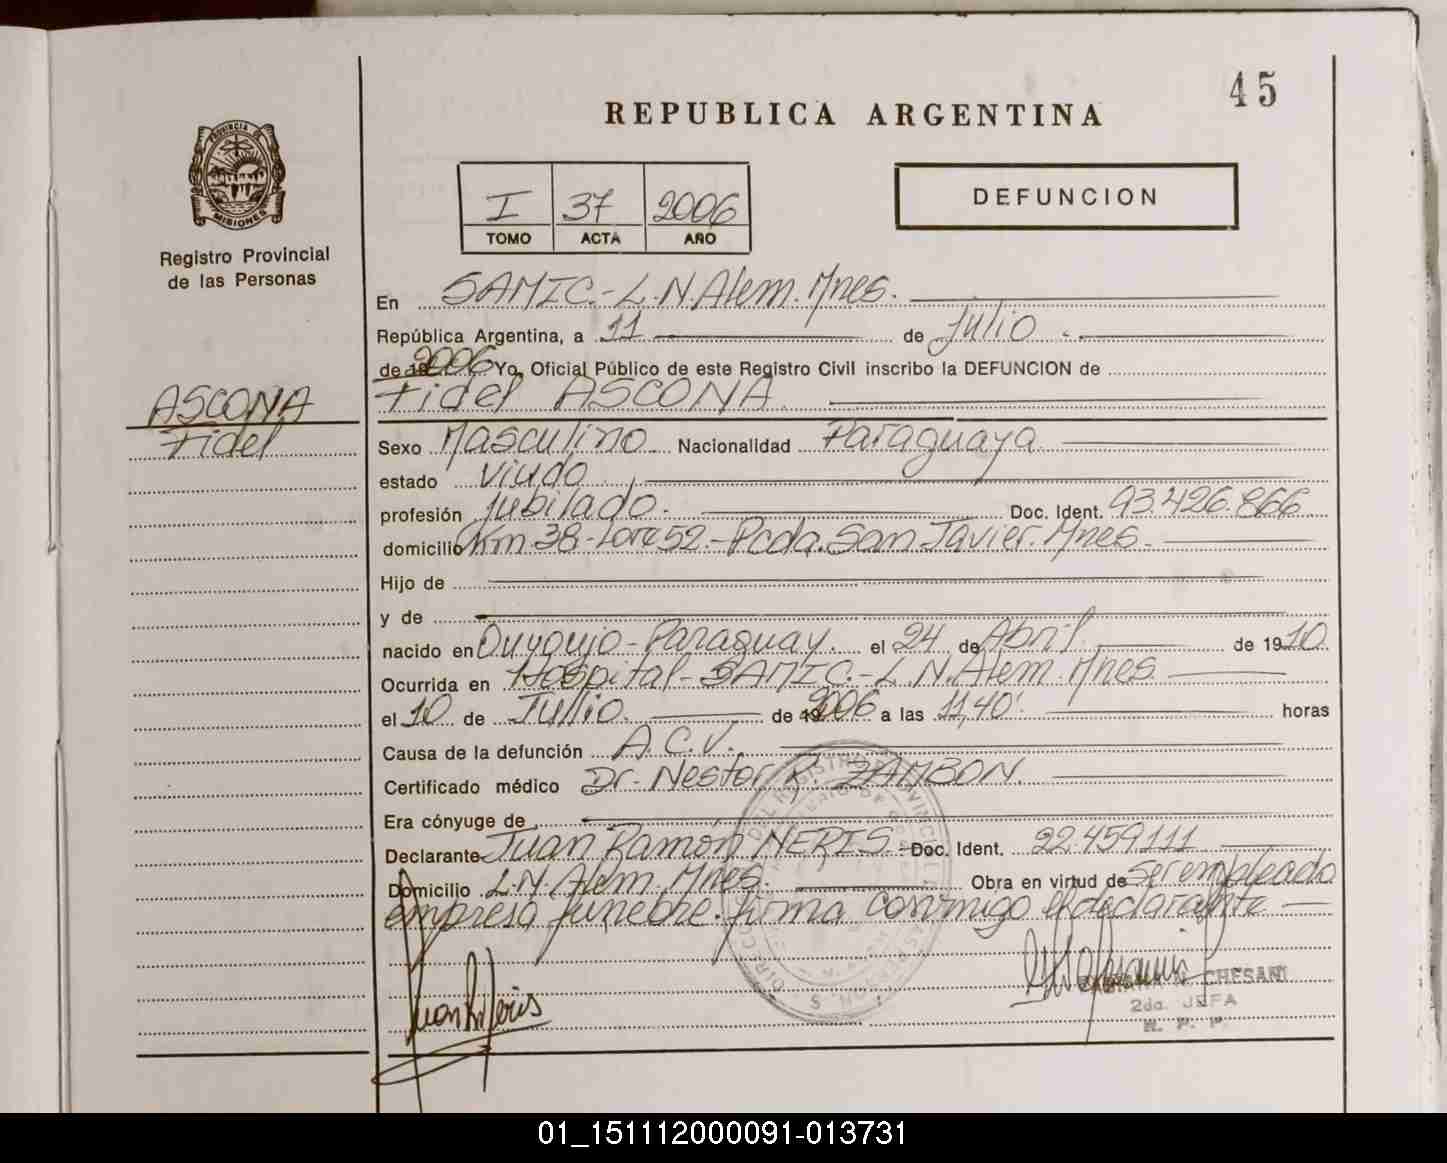 45
REPUBLICA ARGENTINA
PROVINCIA DE
MISIONES
Registro Provincial
de las Personas
I 37 2006
TOMO ACTA AÑO
DEFUNCION
ASCONA
Fidel
En SAMIC.-L.N.Alem.Mnes.
República Argentina, a 11 de Julio
de 19 2006 Yo, Oficial Público de este Registro Civil inscribo la DEFUNCION de
Fidel ASCONA
Sexo Masculino Nacionalidad Paraguaya
estado viudo
profesión jubilado. Doc. Ident. 93.426.866
domicilio Km 38-Lote 52.-Pcda.San Javier.Mnes.
Hijo de
y de
nacido en -Paraguay. el 24 de Abril de 1910.
Ocurrida en Hospital-SAMIC.-L.N.Alem.Mnes.
el 10 de Julio. de 19 2006 a las 11,40' horas
Causa de la defunción A.C.V.
Certificado médico Dr. Nestor R. ZAMBON.
Era cónyuge de
Declarante Juan Ramón NERIS. Doc. Ident. 22.459.111
Domicilio L.N.Alem.Mnes. Obra en virtud de ser empleado
empresa funebre. firma conmigo el declarante
Juan R. Neris
N. CHESANI
2da. JEFA
R. P. P.
01_151112000091-013731